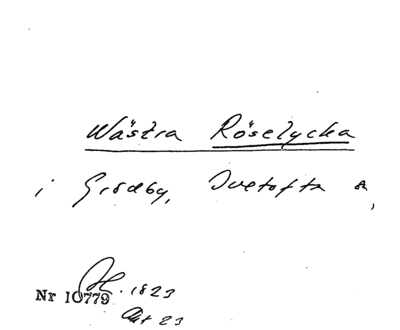 Wästra Röselycka
i Grödby, Ivetofta s,
Nr 10779 H. 1823
Akt 23